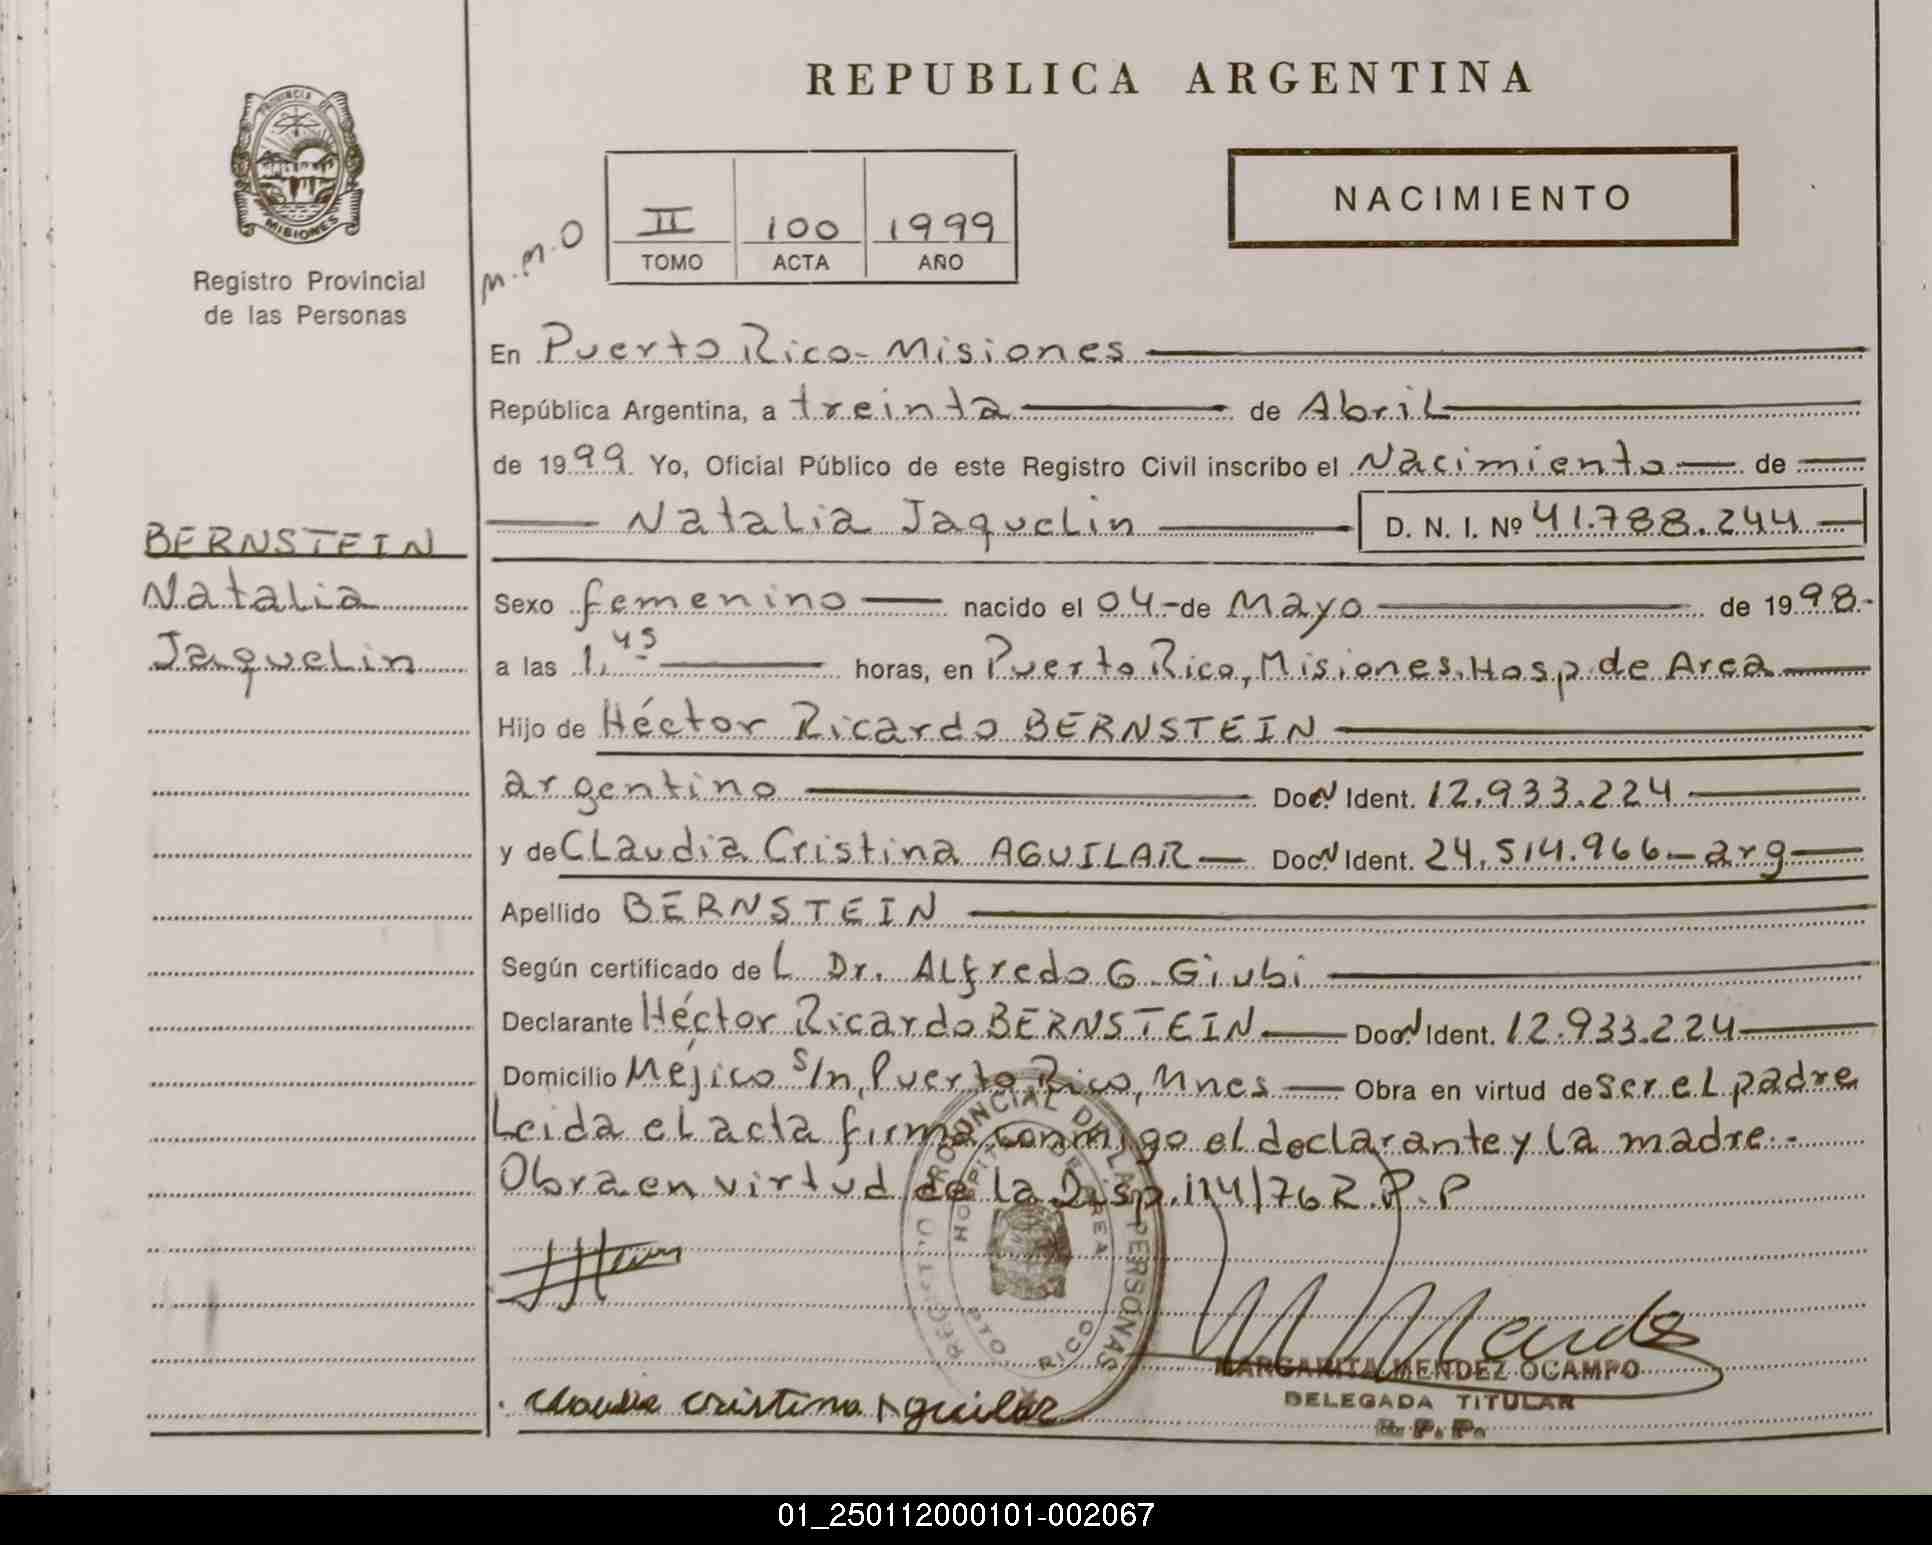 REPUBLICA ARGENTINA
PROVINCIA DE
MISIONES
Registro Provincial
de las Personas
NACIMIENTO
M.M.O
II 100 1999
TOMO ACTA AÑO
En Puerto Rico- Misiones
República Argentina, a treinta de Abril
de 1999. Yo, Oficial Público de este Registro Civil inscribo el Nacimiento de
Natalia Jaquelin D. N. I. Nº 41.788.244
BERNSTEIN
Natalia
Jaquelin
Sexo femenino nacido el 04-de Mayo de 1998-
a las 1,45 horas, en Puerto Rico, Misiones.Hosp.de Area
Hijo de Héctor Ricardo BERNSTEIN
argentino Doc.N Ident. 12.933.224
y de Claudia Cristina AGUILAR Doc.N Ident. 24.514.966-arg
Apellido BERNSTEIN
Según certificado de L Dr. Alfredo G. Giubi
Declarante Héctor Ricardo BERNSTEIN Doc.N Ident. 12.933.224
Domicilio Méjico S/n, Puerto Rico, Mnes Obra en virtud de ser el padre
Leida el acta firma conmigo el declarante y la madre.-
Obra en virtud de la Disp.114/76 R.P.P
REGISTRO PROVINCIAL DE LAS PERSONAS
HOSPITAL DE AREA
PTO. RICO
M Mendez
MARGARITA MENDEZ OCAMPO
DELEGADA TITULAR
R. P. P.
Claudia cristina Aguilar
01_250112000101-002067